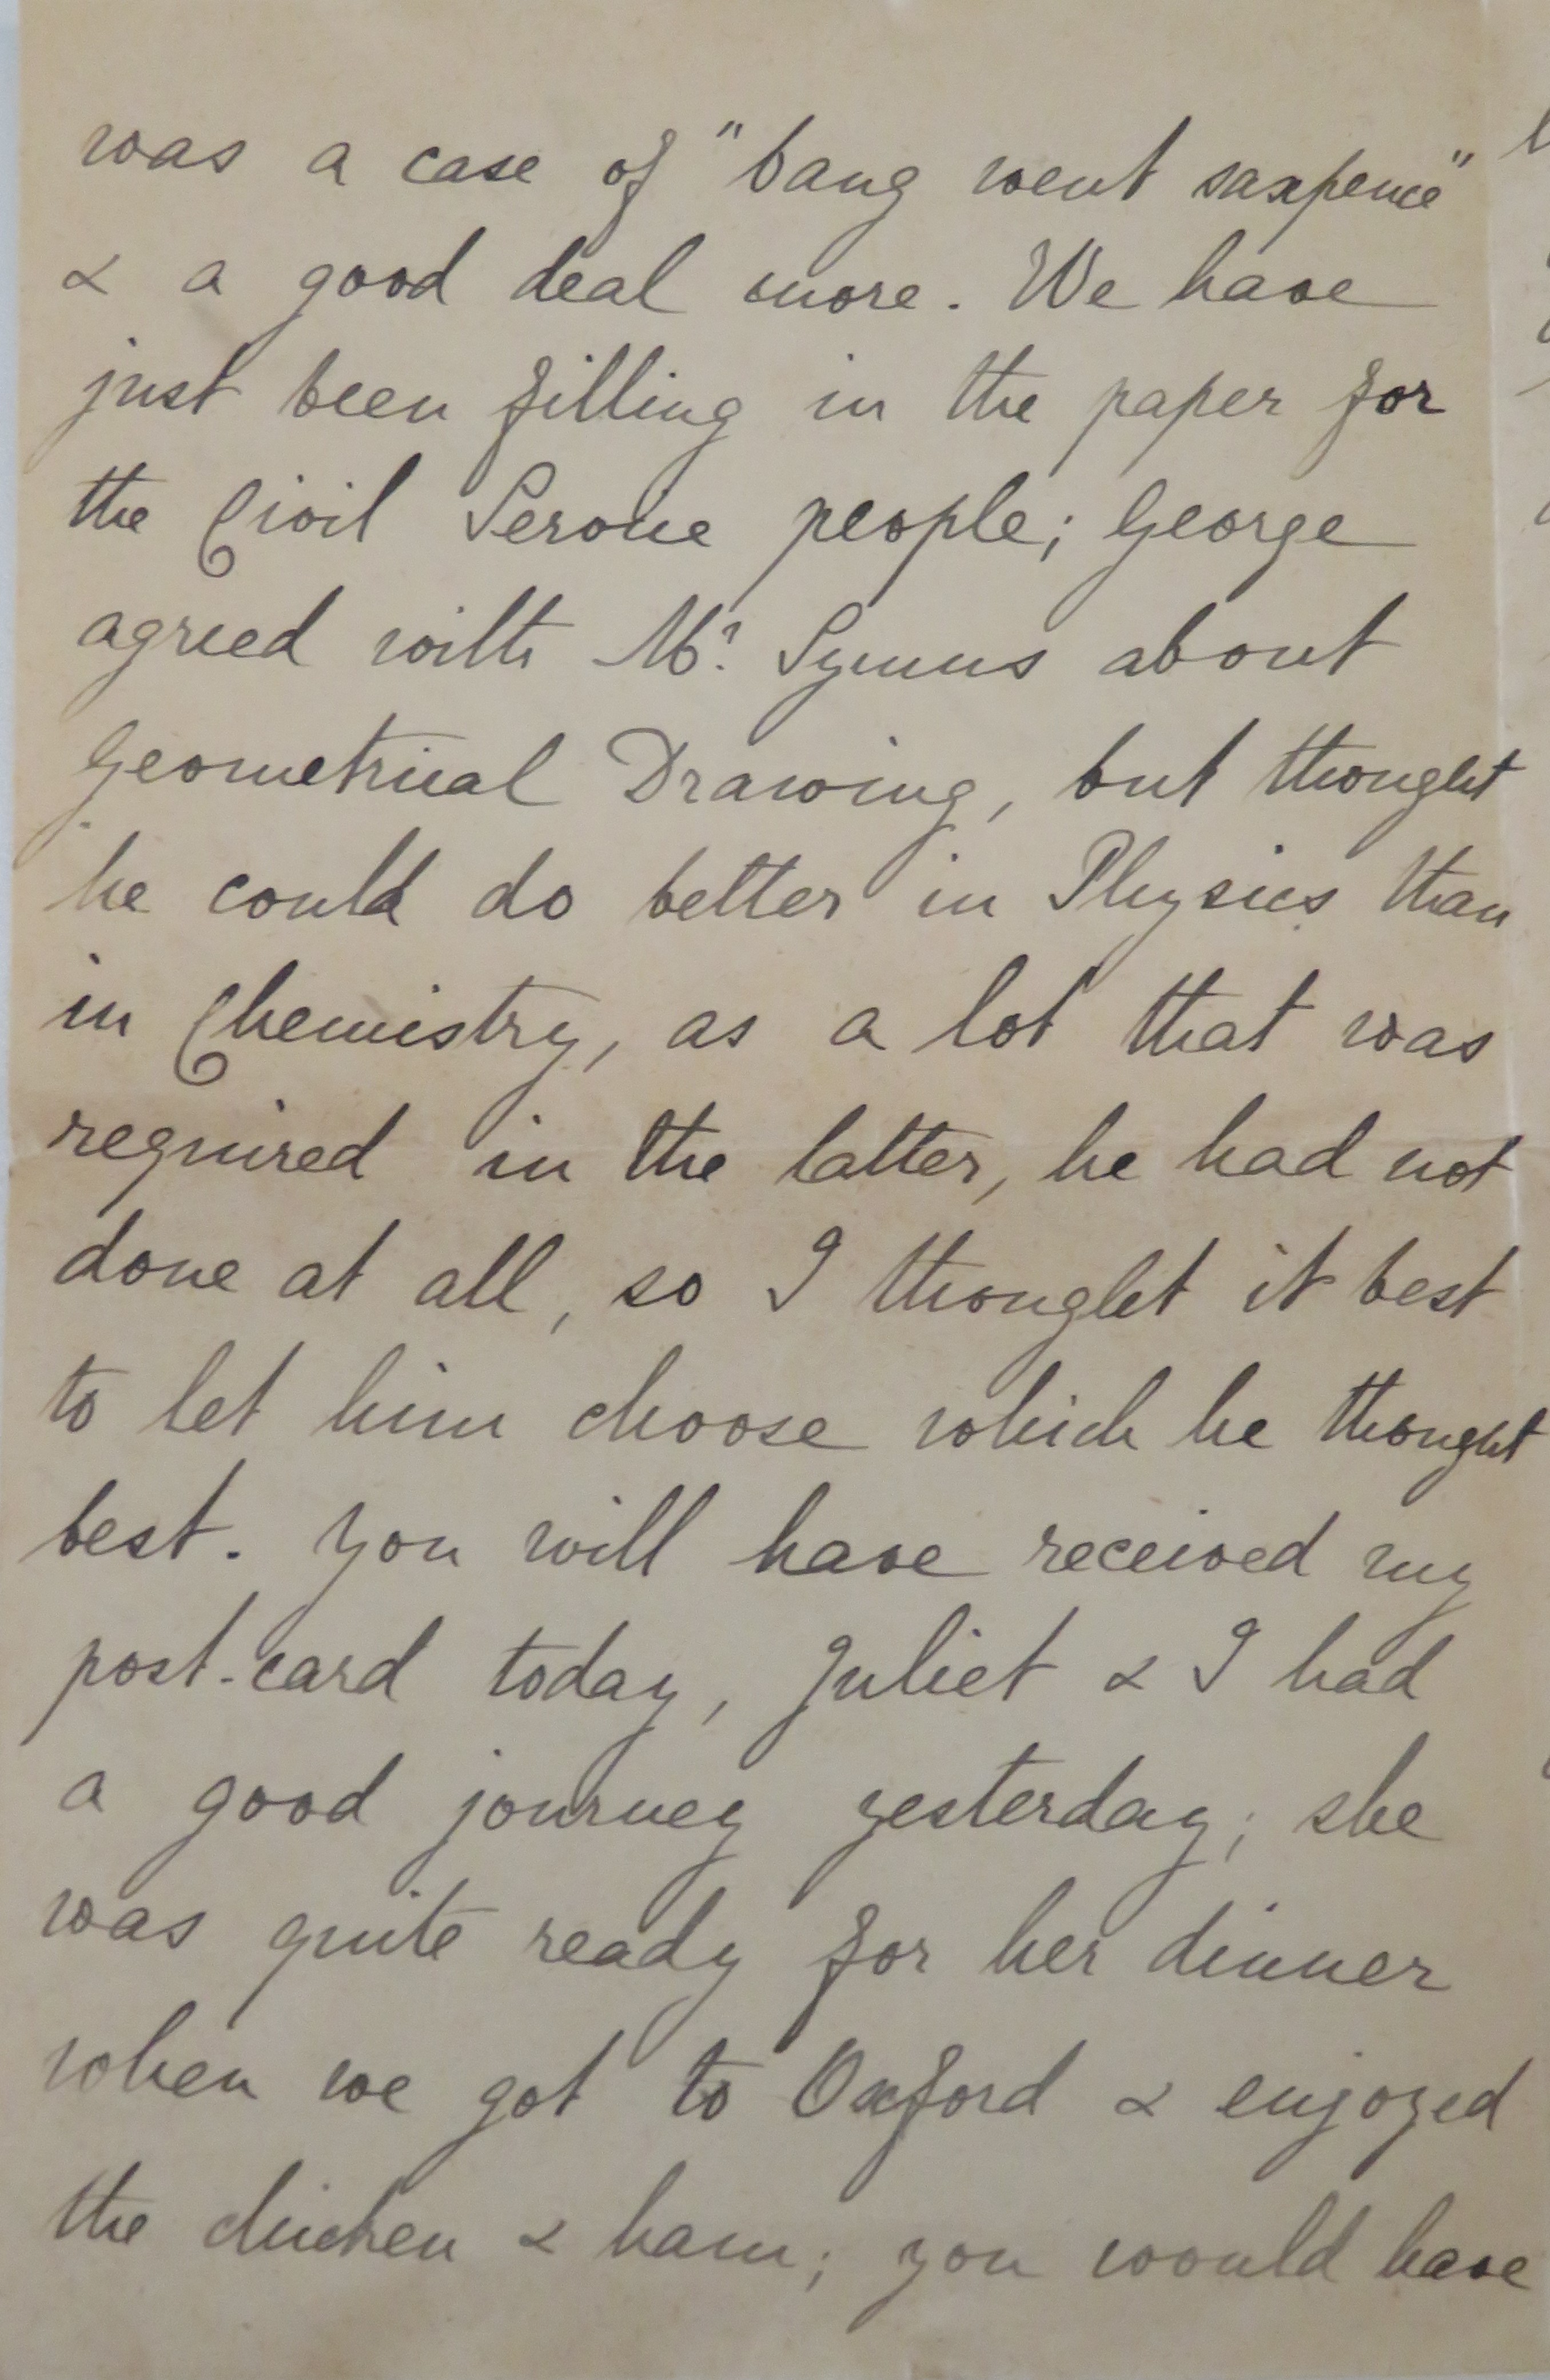 was a case of "bang went saxpence"
& a good deal more. We have
just been filling in the paper for
the Civil Service people; George
agreed with Mr. Symns about
Geometrical Drawing, but thought
he could do better in Physics than
in Chemistry, as a lot that was
required in the latter, he had not
done at all, so I thought it best
to let him choose which he thought
best. You will have received my
post-card today, Juliet & I had
a good journey yesterday; she
was quite ready for her dinner
when we got to Oxford & enjoyed
the chicken & ham; you would have